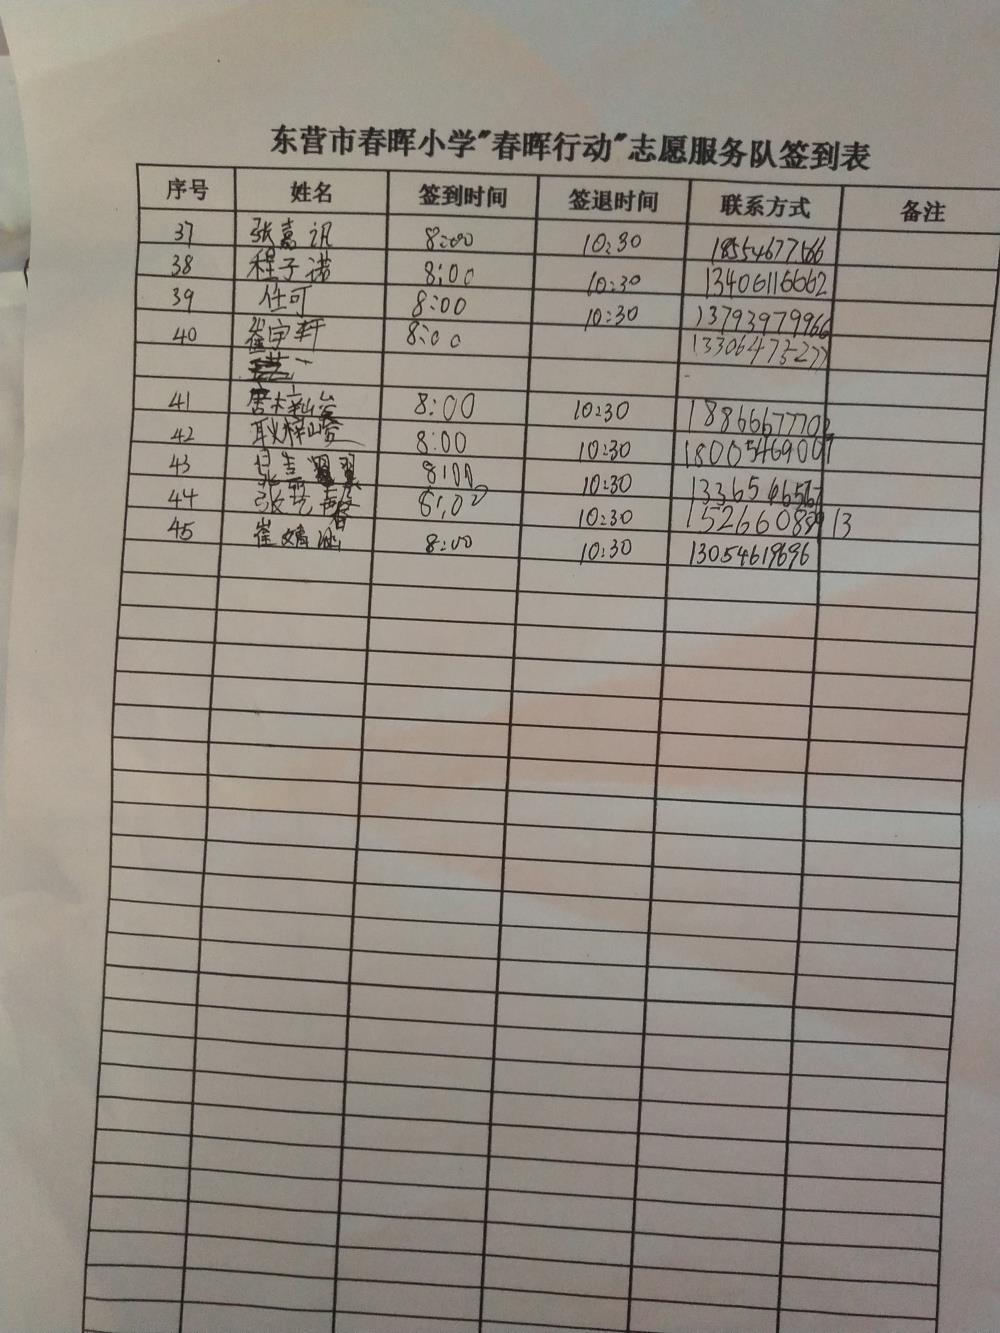 东营市春晖小学"春晖行动"志愿服务队签到表
序号 姓名 签到时间 签退时间 联系方式 备注
37 张嘉讯 8:00 10:30 18554677566
38 程子诺 8:00 10:30 13406116662
39 任可 8:00 10:30 13793979966
40 崔宇轩 8:00 13306473277
41 8:00 10:30 1886667770
42 耿梓 8:00 10:30 18005469009
43 8:00 10:30 13365466567
44 张 8:00 10:30 15266088913
45 崔婧涵 8:00 10:30 13054619696